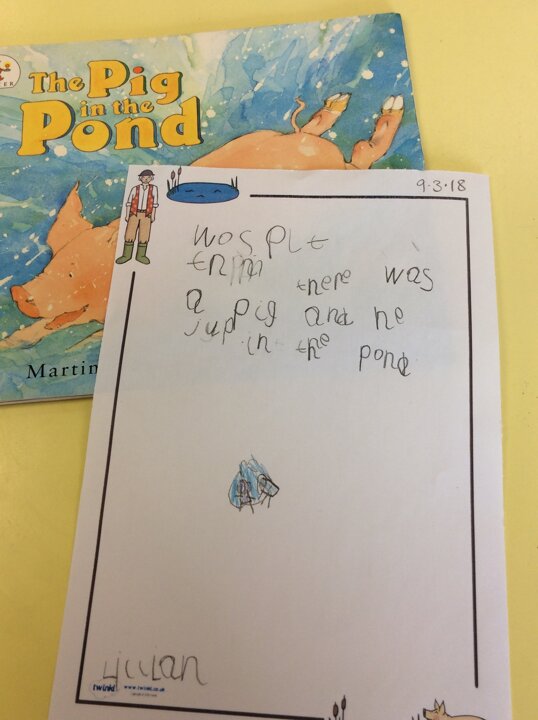 The Pig
in the
Pond
Martin
9.3.18
wos
there was
a pig and he
jup in the pond
Lillian
twinkl www.twinkl.co.uk